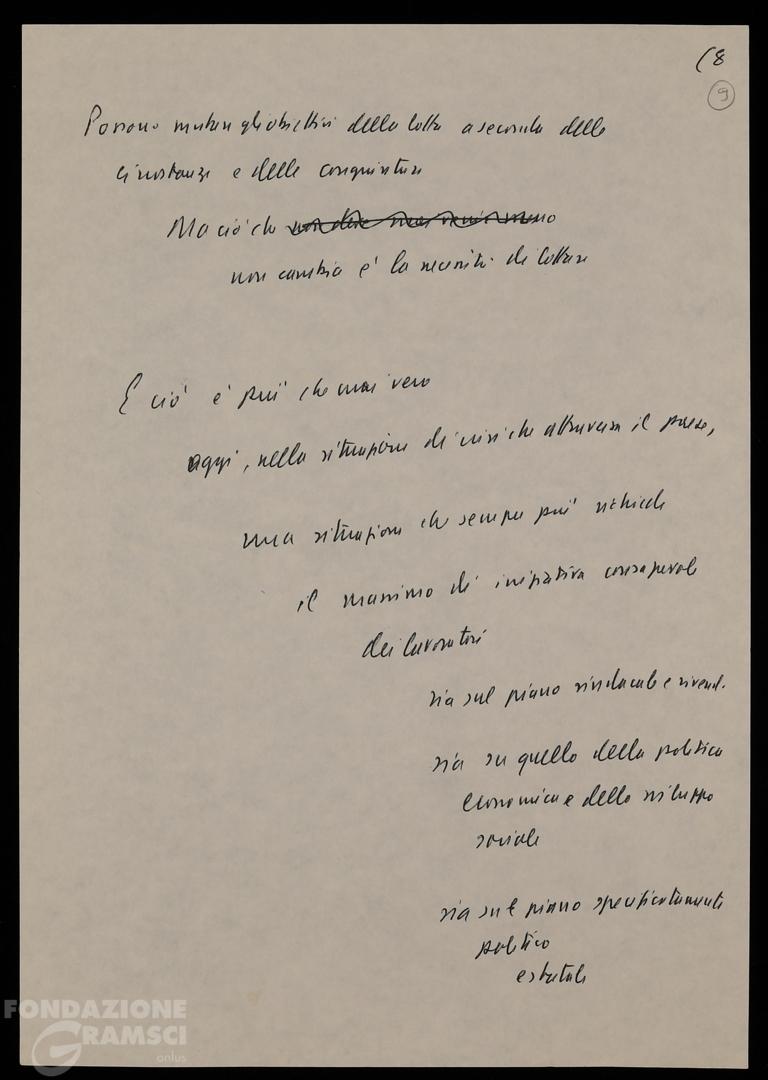 (8
9
Possono mutare gli obiettivi della lotta a seconda delle
circostanze e delle congiunture
Ma ciò che
non cambia è la necessità di lottare
E ciò è più che mai vero
oggi, nella situazione di crisi che attraversa il paese,
una situazione che sempre più richiede
il massimo di iniziativa consapevole
dei lavoratori
sia sul piano sindacale e rivend.
sia su quello della politica
economica e dello sviluppo
sociale
sia sul piano specificatamente
politico
e statale
FONDAZIONE
GRAMSCI
onlus